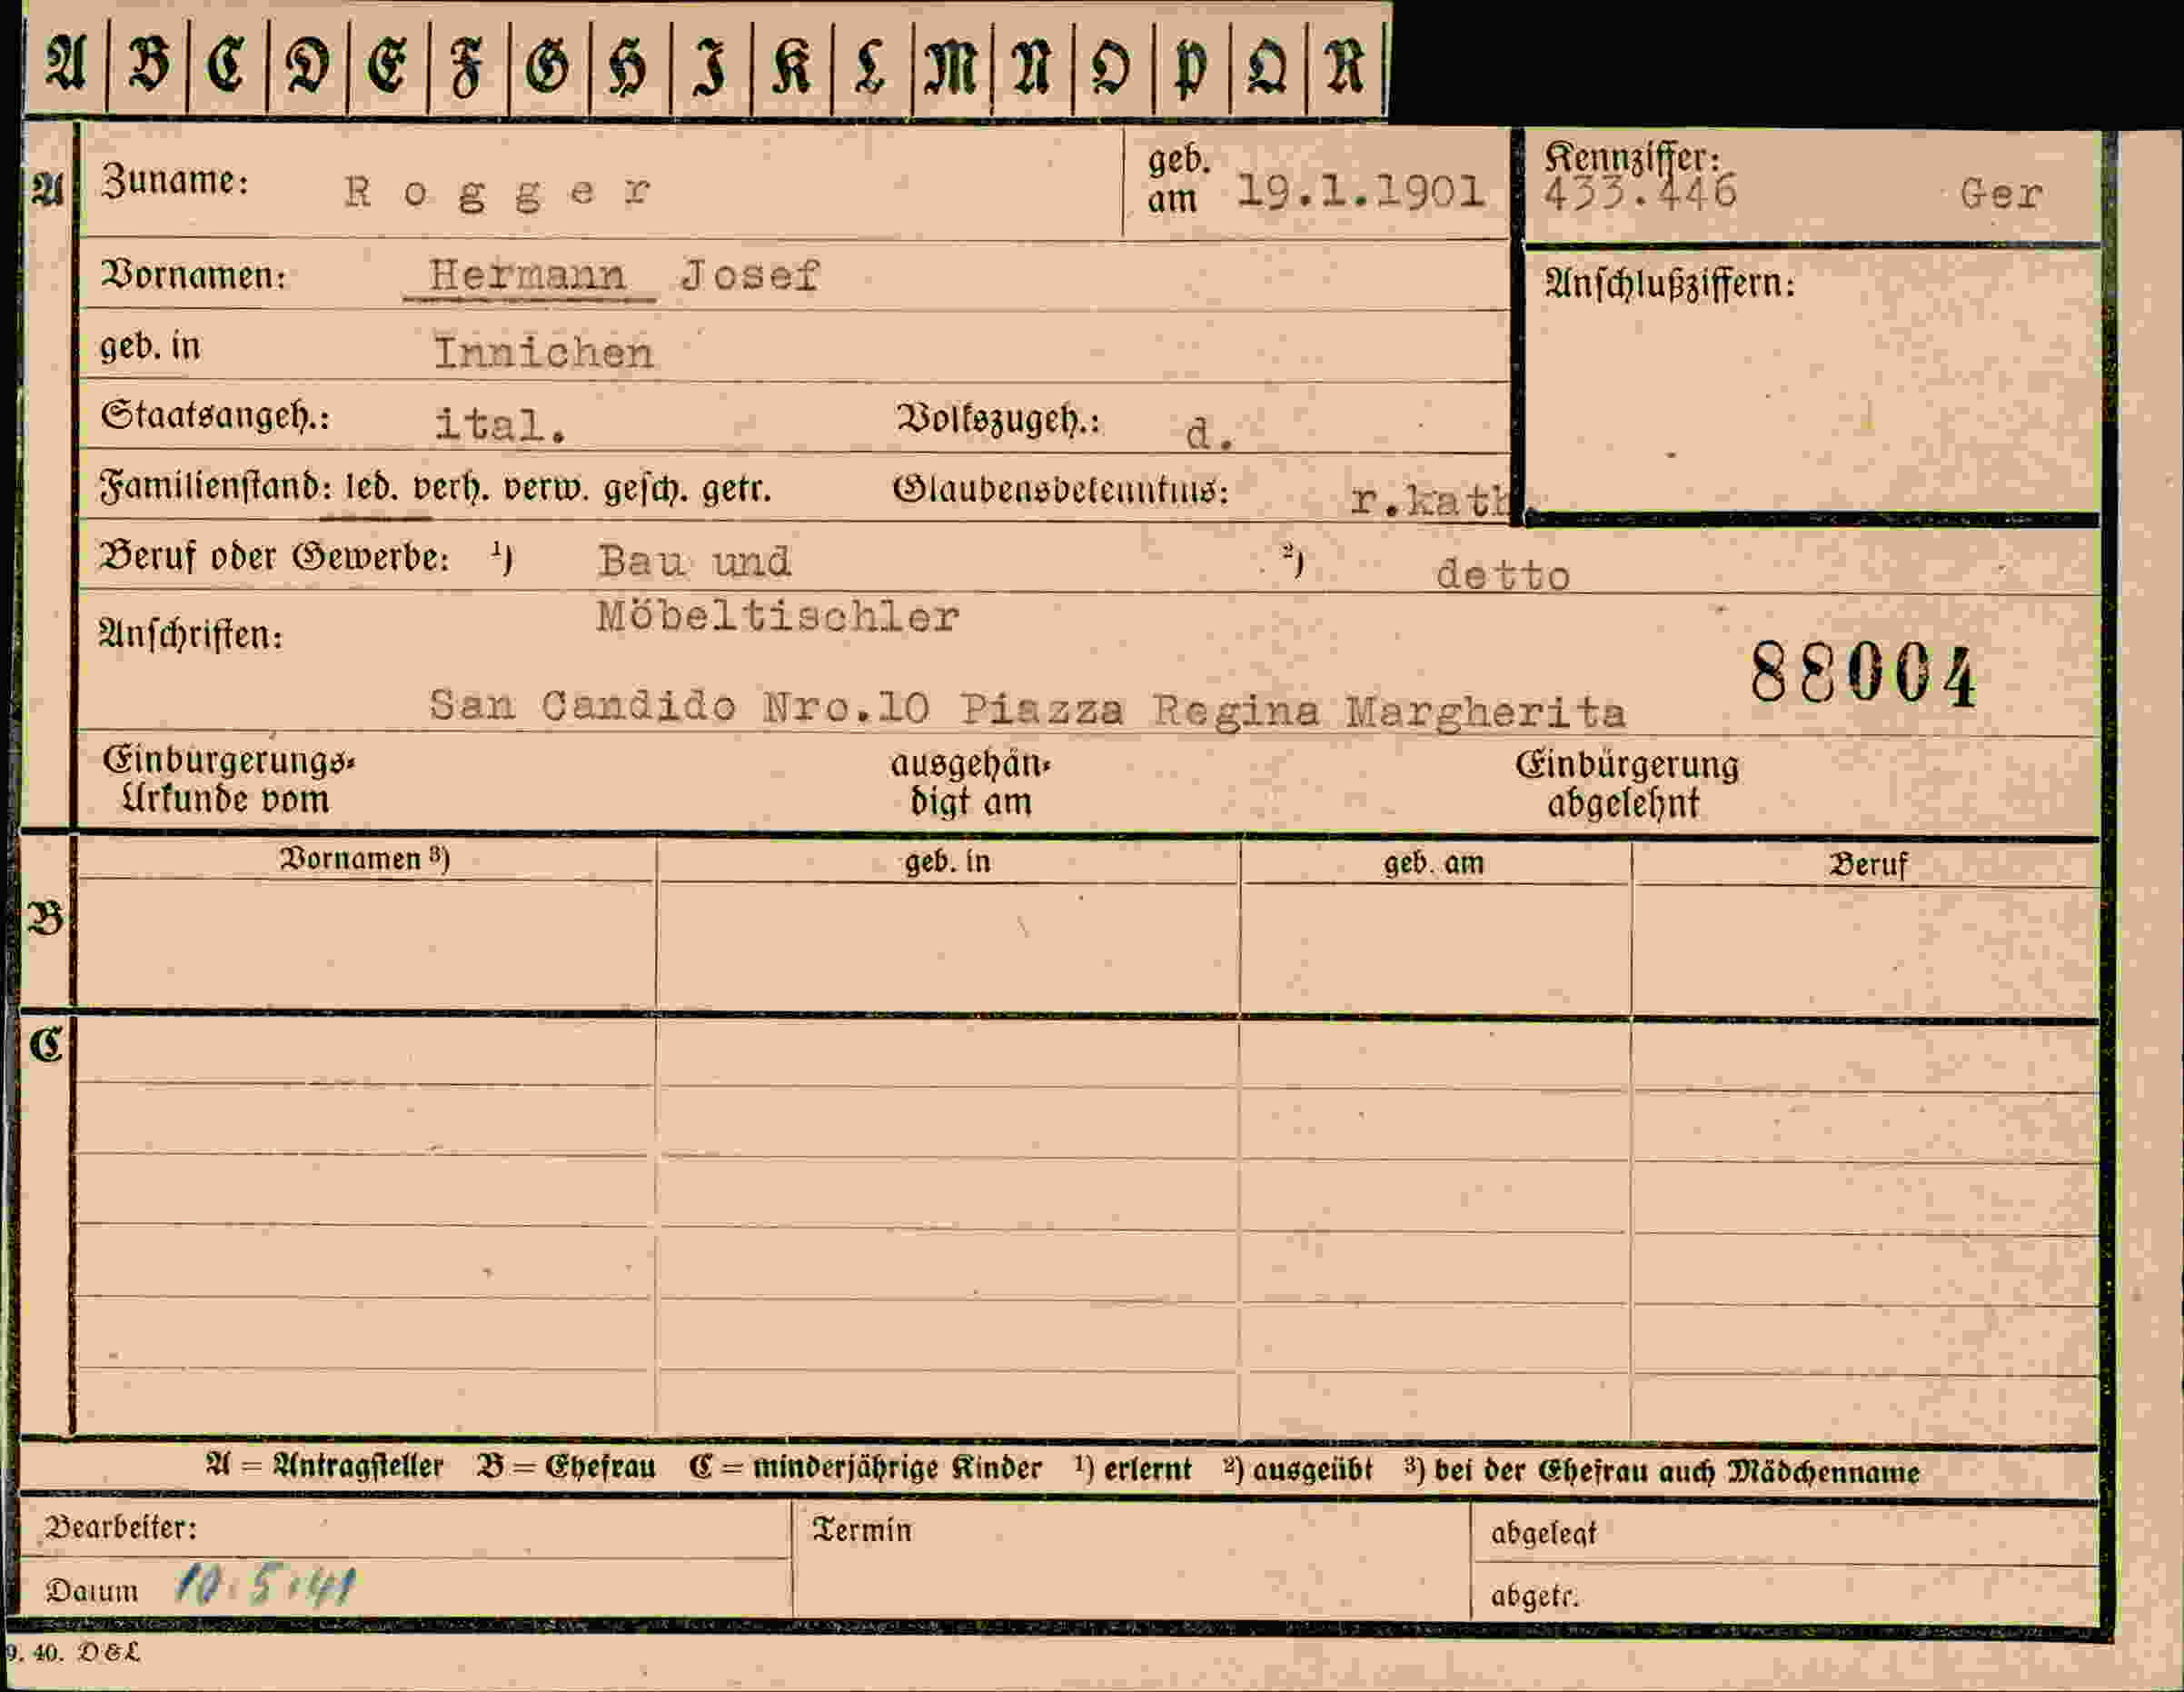 A B C D E F G H I K L M N O P Q R
A Zuname: Rogger geb. am 19.1.1901 Kennziffer: 433.446 Ger
Vornamen: Hermann Josef Anschlußziffern:
geb. in Innichen
Staatsangeh.: ital. Volkszugeh.: d.
Familienstand: led. verh. verw. gesch. getr. Glaubensbekenntnis: r.kath.
Beruf oder Gewerbe: ¹) Bau und ²) detto
Möbeltischler
Anschriften:
88004
San Candido Nro.10 Piazza Regina Margherita
Einbürgerungs- ausgehän- Einbürgerung
Urkunde vom digt am abgelehnt
Vornamen ³) geb. in geb. am Beruf
B
C
A = Antragsteller B = Ehefrau C = minderjährige Kinder ¹) erlernt ²) ausgeübt ³) bei der Ehefrau auch Mädchenname
Bearbeiter: Termin abgelegt
Datum 10.5.41 abgetr.
9. 40. D&L